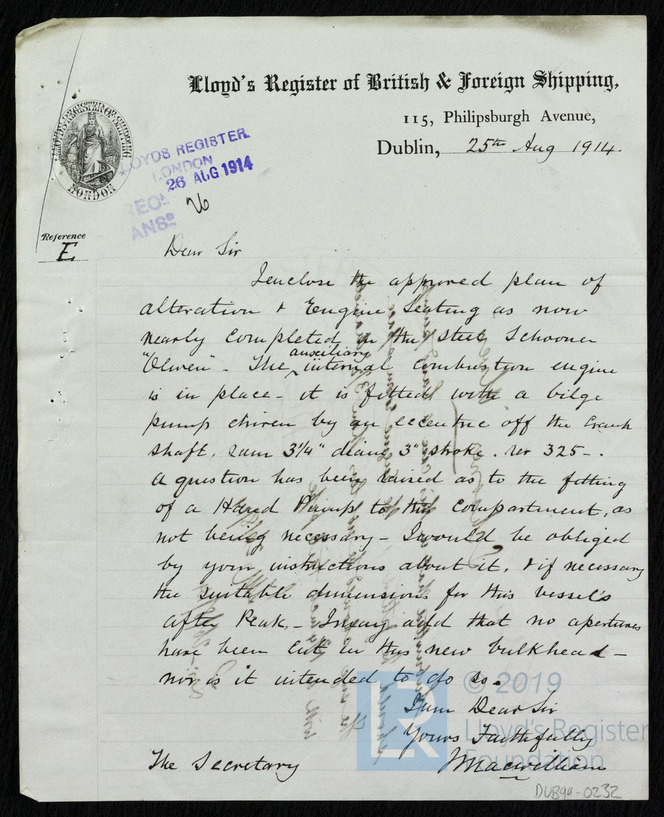 Lloyd's Register of British & Foreign Shipping,
115, Philipsburgh Avenue,
Dublin, 25th Aug 1914.
LLOYD'S REGISTER OF SHIPPING
LONDON
LLOYDS REGISTER
LONDON
26 AUG 1914
REC'D
ANSD
26
Reference
E
Dear Sir
I enclose the approved plan of
alteration & Engine Seating as now
nearly completed in the steel Schooner
"Olwen" - The auxiliary internal combustion engine
is in place - it is fitted with a bilge
pump driven by an eccentric off the crank
shaft, ram 3 1/4" diam 3" stroke. rev 325 -.
A question has been raised as to the fitting
of a Hand Pump to this compartment, as
not being necessary - I would be obliged
by your instructions about it, & if necessary
the suitable dimension for this vessels
after Peak. - I may add that no apertures
have been cut in this new bulkhead -
nor is it intended to do so.
I am Dear Sir
Yours Faithfully
J Macwilliam
The Secretary
© 2019
Lloyd's Register
Foundation
LR
DUB99-0232